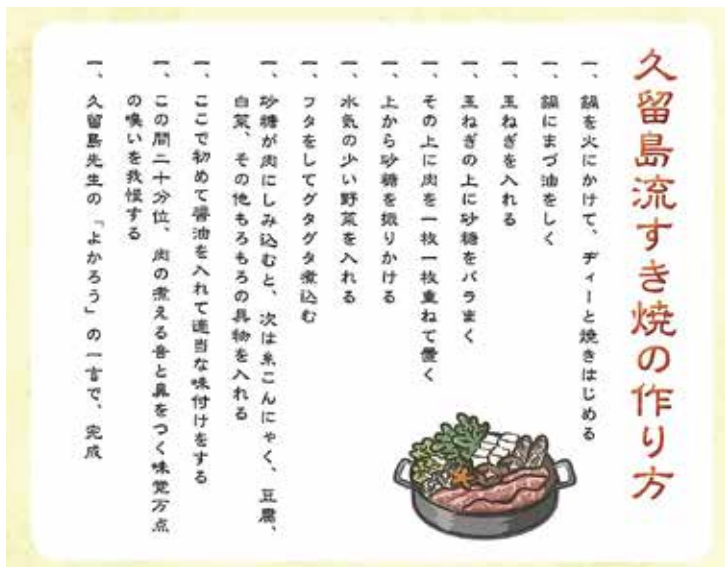 久留島流すき焼の作り方
一、鍋を火にかけて、ヂィーと焼きはじめる
一、鍋にまづ油をしく
一、玉ねぎを入れる
一、玉ねぎの上に砂糖をバラまく
一、その上に肉を一枚一枚重ねて置く
一、上から砂糖を振りかける
一、水気の少い野菜を入れる
一、フタをしてグタグタ煮込む
一、砂糖が肉にしみ込むと、次は糸こんにゃく、豆腐、
白菜、その他もろもろの具物を入れる
一、ここで初めて醤油を入れて適当な味付けをする
一、この間二十分位、肉の煮える音と鼻をつく味覚万点
の嗅いを我慢する
一、久留島先生の「よかろう」の一言で、完成